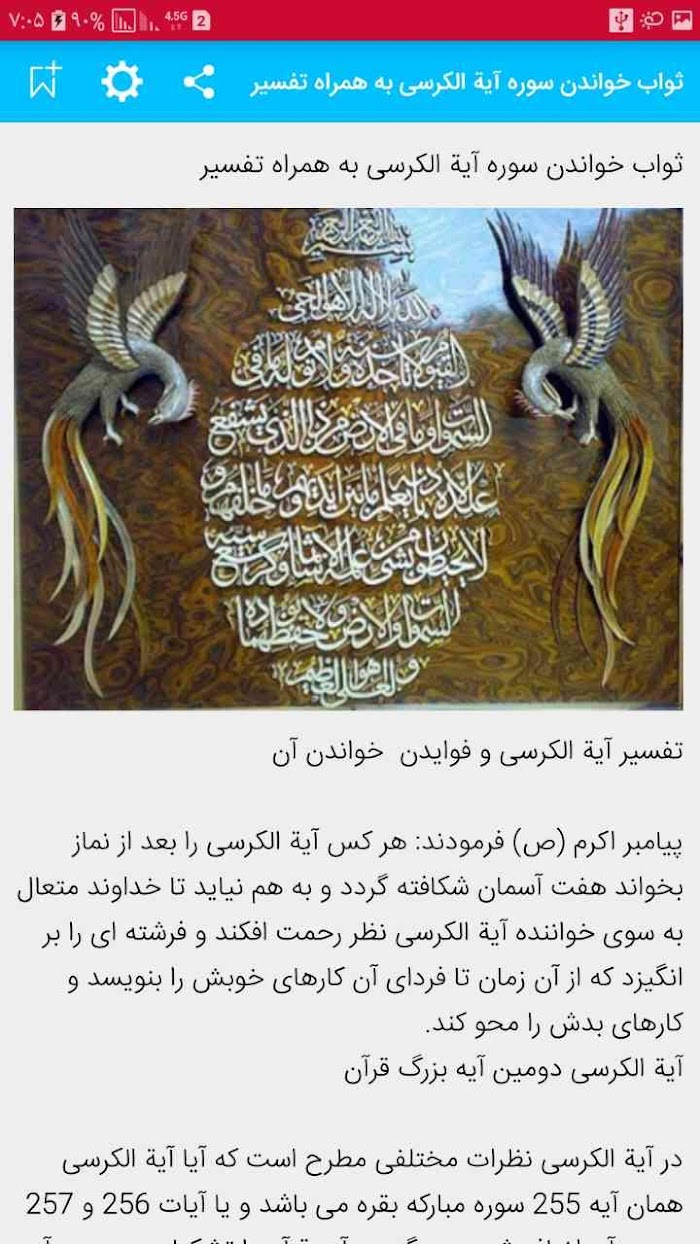 ۷:۰۵ ۹۰% 4.5G 2
ثواب خواندن سوره آیة الکرسی به همراه تفسیر
ثواب خواندن سوره آیة الکرسی به همراه تفسیر
الله لا اله الا هو الحی
القیوم لا تاخذه سنة ولا نوم له ما فی
السموات و ما فی الارض من ذا الذی یشفع
عنده الا باذنه یعلم ما بین ایدیهم و ما خلفهم و
لا یحیطون بشیء من علمه الا بما شاء وسع کرسیه
السموات والارض ولا یؤده حفظهما
و هو العلی العظیم
تفسیر آیة الکرسی و فوایدن خواندن آن
پیامبر اکرم (ص) فرمودند: هر کس آیة الکرسی را بعد از نماز
بخواند هفت آسمان شکافته گردد و به هم نیاید تا خداوند متعال
به سوی خواننده آیة الکرسی نظر رحمت افکند و فرشته ای را بر
انگیزد که از آن زمان تا فردای آن کارهای خوبش را بنویسد و
کارهای بدش را محو کند.
آیة الکرسی دومین آیه بزرگ قرآن
در آیة الکرسی نظرات مختلفی مطرح است که آیا آیة الکرسی
همان آیه 255 سوره مبارکه بقره می باشد و یا آیات 256 و 257